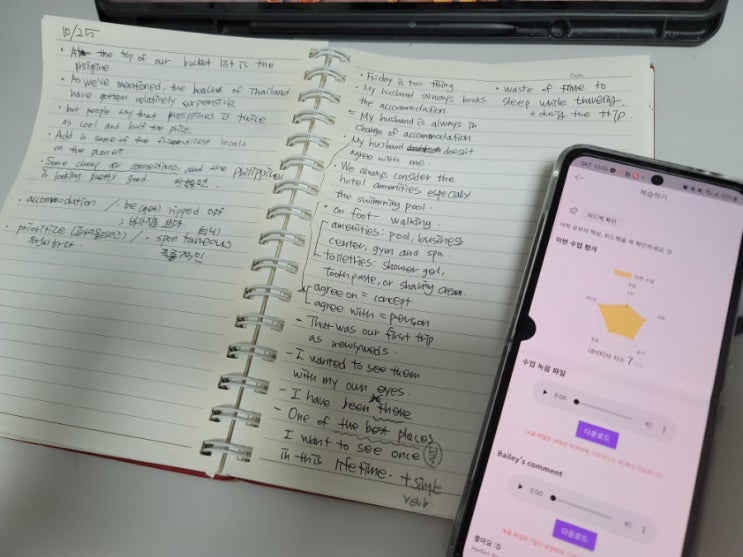 10/25
• the top of our bucket list is the
philippine
• As we've mentioned, the beaches of Thailand
have gotten relatively expensive
• but people say that philippines is twice
as cool and half the price
• Add in some of the friendliest locals
on the planet
• Some cheap air connections, and the philippines
is looking pretty good
• accommodation / be (get) ripped off
• prioritize / • spontaneous
• Friday is too tiring.
• My husband always books
the accommodation.
• My husband is always in
charge of accommodation
• My husband doesn't
agree with me.
• We always consider the
hotel amenities especially
the swimming pool.
• on foot – walking.
amenities: pool, business
center, gym and spa.
toiletries: shower gel,
toothpaste, or shaving cream.
agree on = concept
agree with = person.
- That was our first trip
as newlyweds.
- I wanted to see them
with my own eyes.
- I have been there
- One of the best places
I want to see once
in this lifetime.
• waste of time to
sleep while traveling.
+ during the trip
Date
SKT 12:03
복습하기
피드백 확인
어학 공부의 핵심, 피드백을 꼭 확인하세요 :D
이번 수업 평가
이번 수업
네이티브 지수 7
수업 녹음 파일
0:00
다운로드
Bailey's comment
0:00
다운로드
좋아요 :D